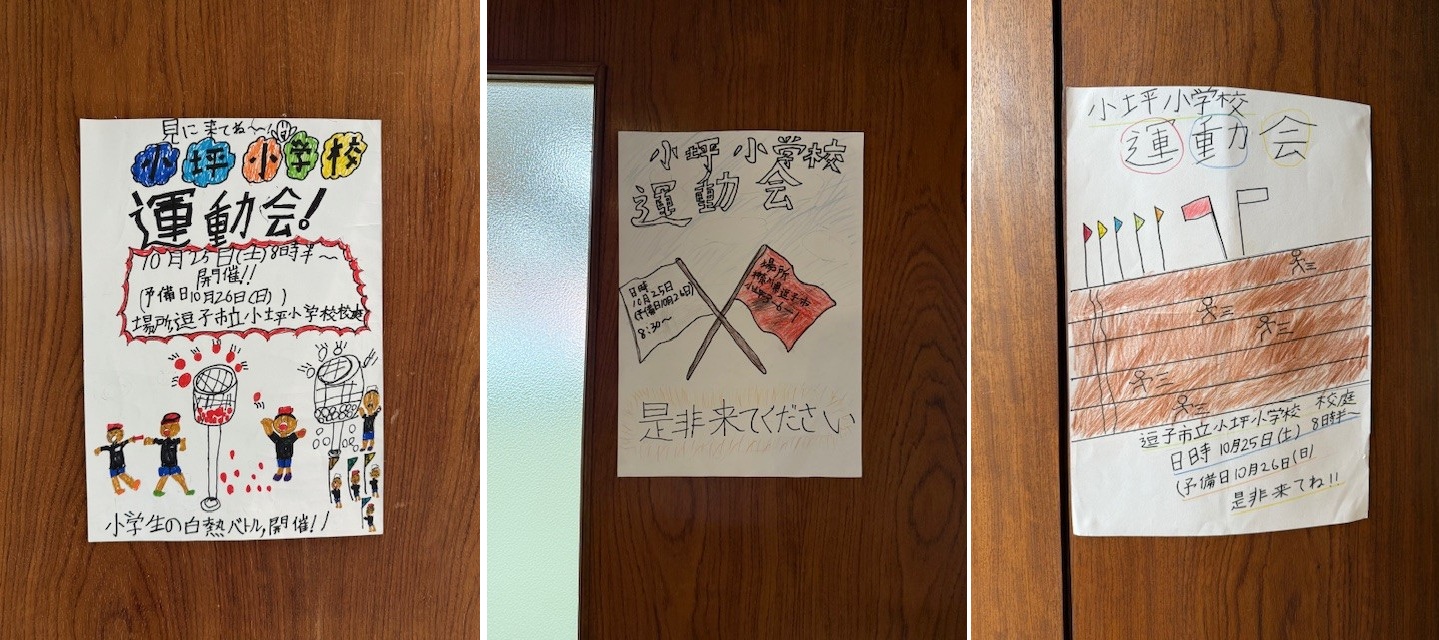 見に来てね〜!
小坪小学校
運動会!
10月25日(土)8時半〜
開催!!
(予備日10月26日(日))
場所,逗子市立小坪小学校校庭
小学生の白熱バトル,開催!!
小坪小学校
運動会
日時
10月25日
(予備日10月26日)
8:30〜
場所
神奈川県逗子市
是非来てください
小坪小学校
運動会
逗子市立小坪小学校 校庭
日時 10月25日(土) 8時半〜
(予備日10月26日(日)
是非来てね!!